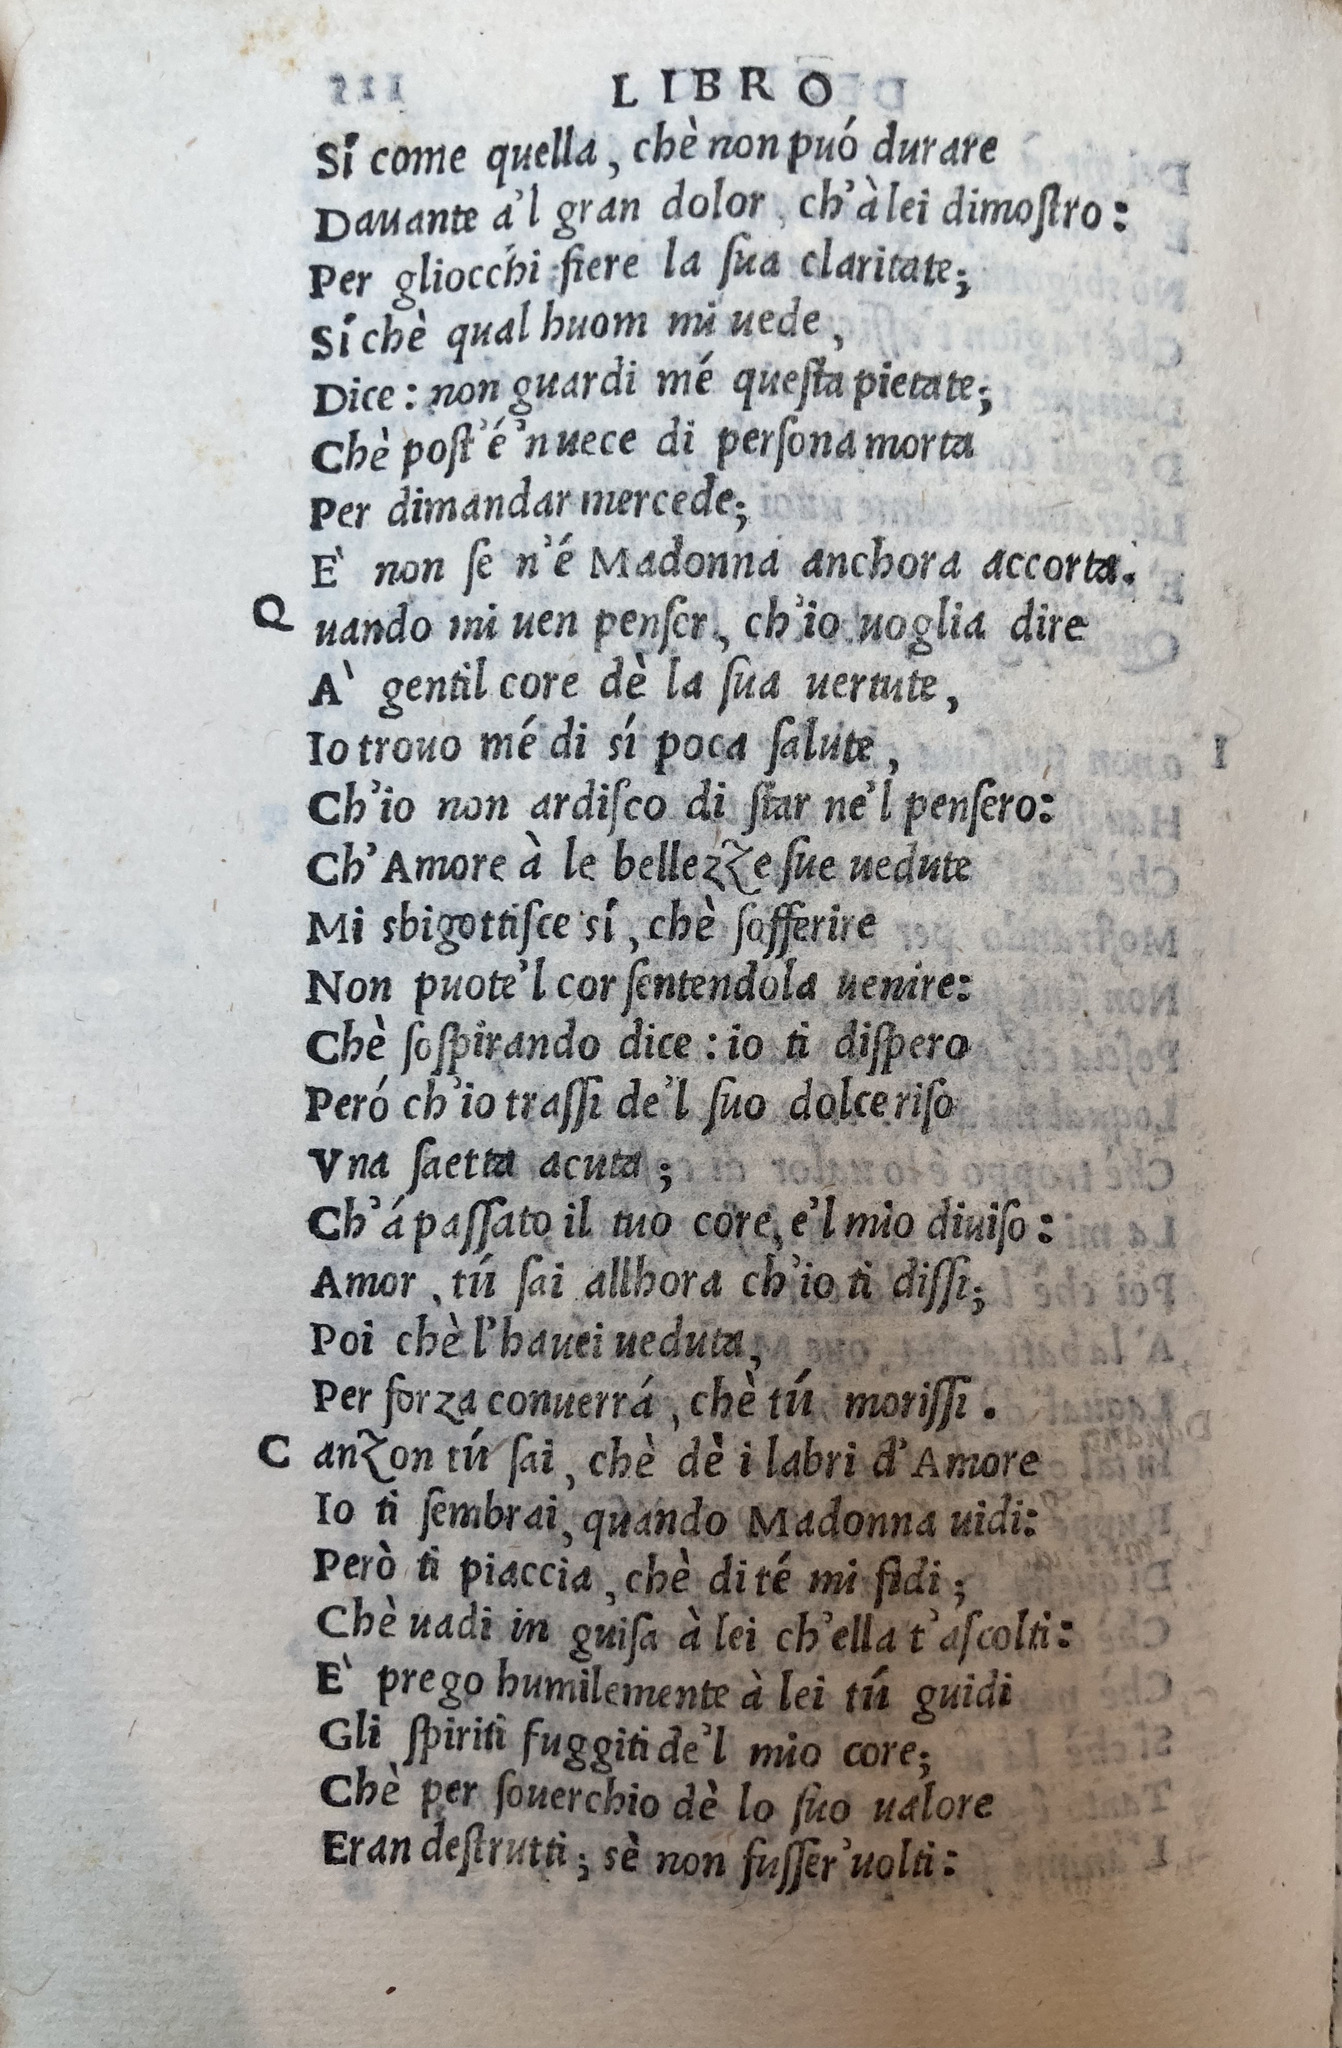 LIBRO
Sí come quella, chè non puó durare
Dauante á'l gran dolor, ch'à lei dimoſtro:
Per gliocchi fiere la ſua claritate;
Sí chè qual huom mi uede,
Dice: non guardi mé queſta pietate;
Chè poſt'é 'nuece di perſona morta
Per dimandar mercede;
E` non ſe n'é Madonna anchora accorta.
Quando mi uen penſer, ch'io uoglia dire
A` gentil core dè la ſua uertute,
Io trouo mé di sí poca ſalute,
Ch'io non ardiſco di ſtar ne'l penſero:
Ch'Amore à le bellezze ſue uedute
Mi sbigottiſce sí, chè ſofferire
Non puote'l cor ſentendola uenire:
Chè ſoſpirando dice: io ti diſpero
Peró ch'io traſſi de'l ſuo dolce riſo
Vna ſaetta acuta;
Ch'á paſſato il tuo core, e'l mio diuiſo:
Amor, tú ſai allhora ch'io ti diſſi;
Poi chè l'hauei ueduta,
Per forza conuerrá, chè tú moriſſi.
Canzon tú ſai, chè dè i labri d'Amore
Io ti ſembrai, quando Madonna uidi:
Però ti piaccia, chè di té mi fidi;
Chè uadi in guiſa à lei ch'ella t'aſcolti:
E` prego humilemente à lei tú guidi
Gli ſpiriti fuggiti de'l mio core;
Chè per ſouerchio dè lo ſuo ualore
Eran deſtrutti; sè non fuſſer'uolti: